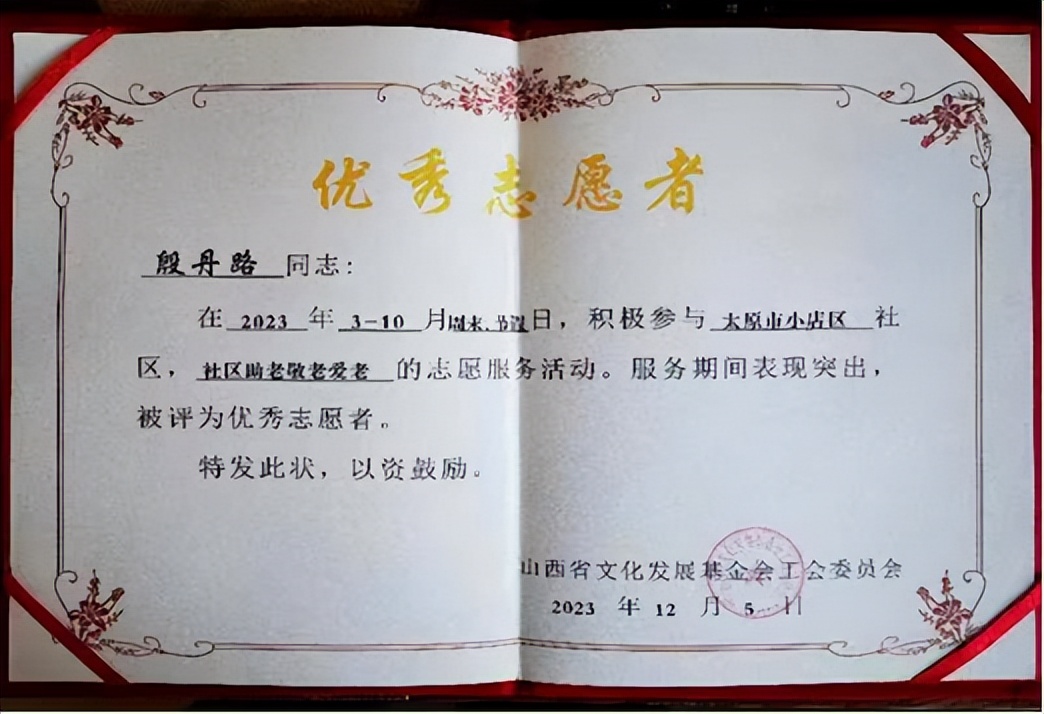 优秀志愿者
殷丹路 同志：
在 2023 年 3-10 月周末、节假日，积极参与 太原市小店区 社
区， 社区助老敬老爱老 的志愿服务活动。服务期间表现突出，
被评为优秀志愿者。
特发此状，以资鼓励。
山西省文化发展基金会工会委员会
2023 年 12 月 5 日